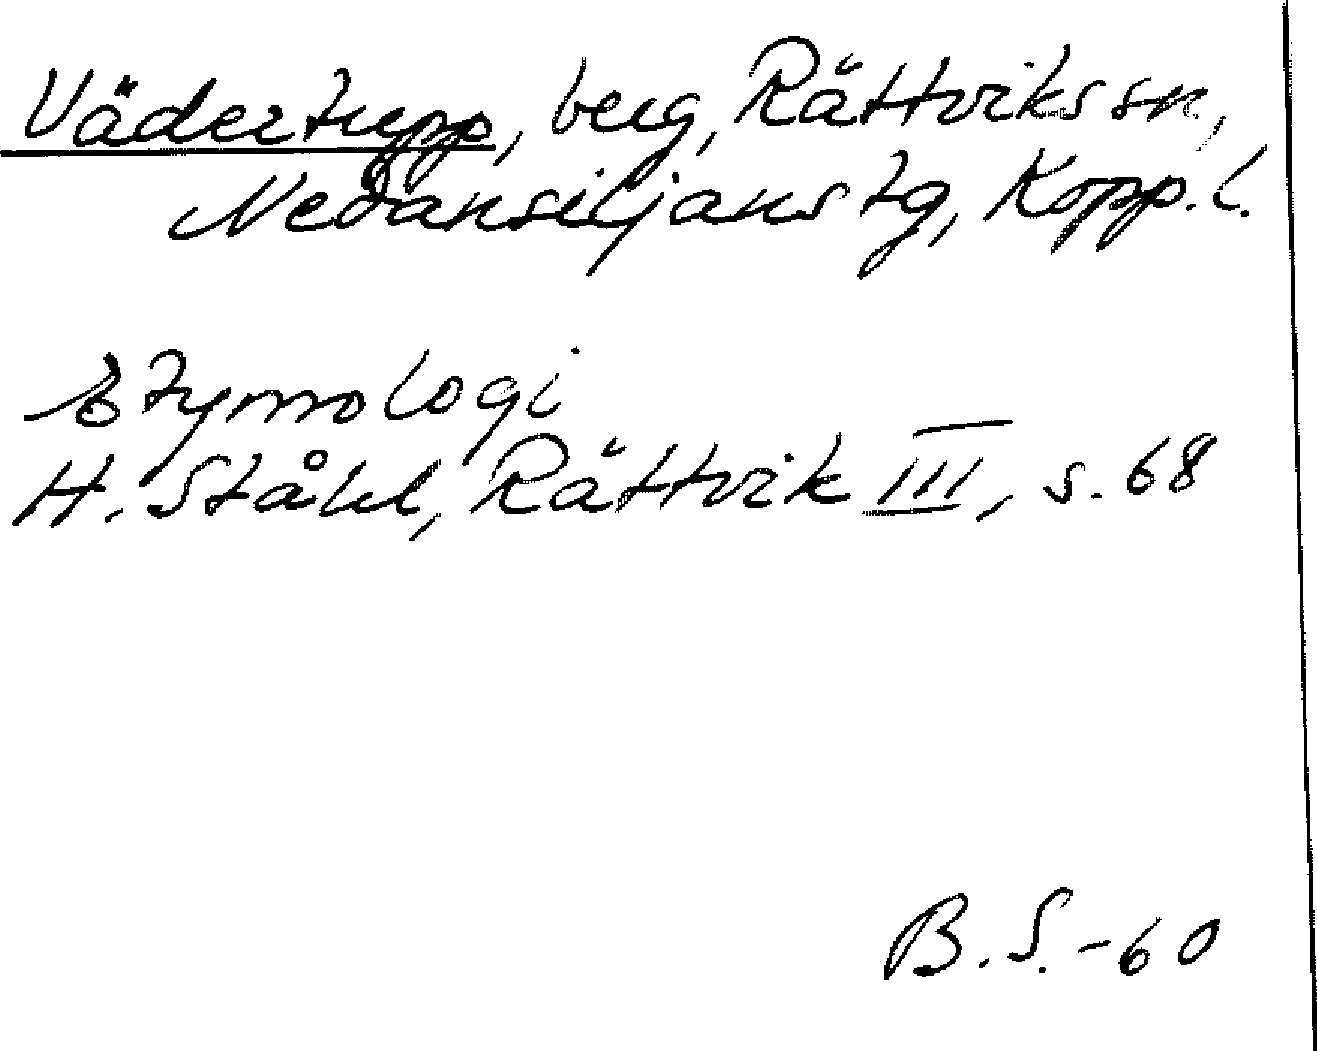 Vädertupp, berg, Rättviks sn,
Nedansiljans tg, Kopp. l.
Etymologi
H. Ståhl, Rättvik III, s. 68
B. S. - 60